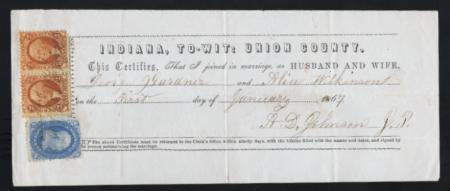 INDIANA, TO-WIT: UNION COUNTY.
This Certifies, That I joined in marriage, as HUSBAND AND WIFE,
George Gardner and Alice Wilkinson
on the First day of January 1867
A. D. Johnson J.P.
The above Certificate must be returned to the Clerk's office within ninety days, with the blanks filled with the names and dates, and signed by
the person solemnizing the marriage.